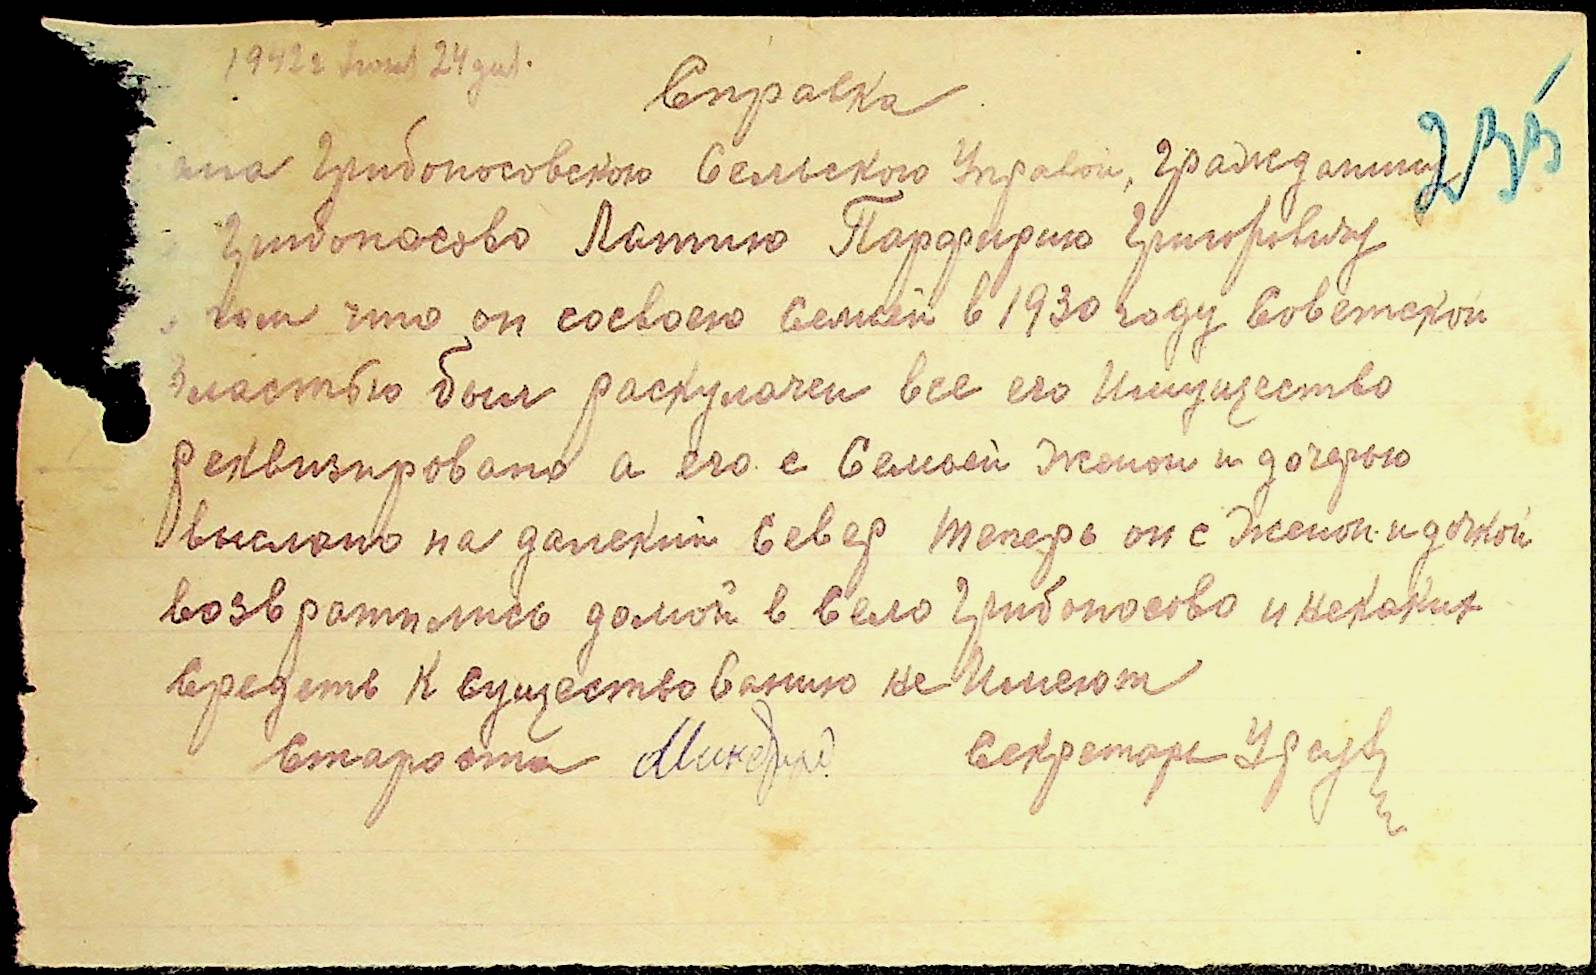 1942 г 24 дня.
Справка
235
дана Грибоносовскою Сельскою Управой, Гражданину
Грибоносово Лапшю Парфирию Григоровичу
том что он сосвоею Семьей в 1930 году Советской
Властью был раскулачен все его Имущество
реквизировано а его с Семьей Женой и дочерью
выслано на далекий Север теперь он с Женой и дочкой
возвратились домой в Село Грибоносово и некаких
Средств к Существованию не Имеют
Староста Секретарь